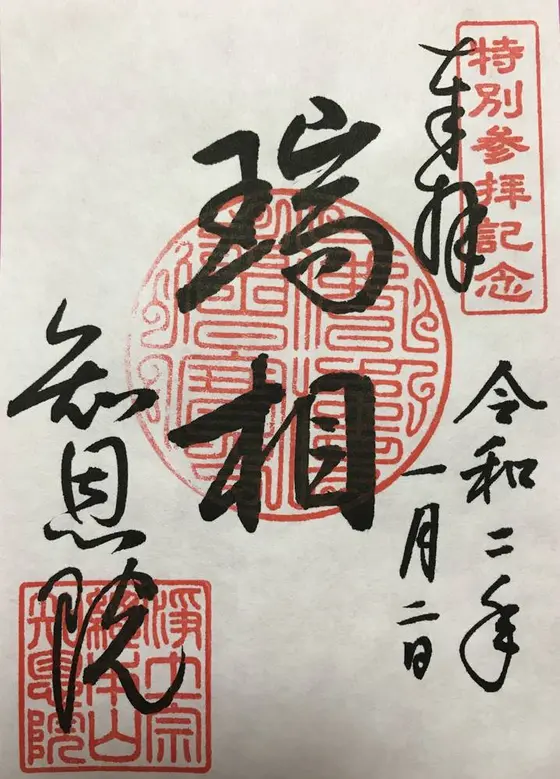 特別参拝記念
奉拝
令和二年
一月二日
瑞相
知恩院
浄土宗
総本山
知恩院